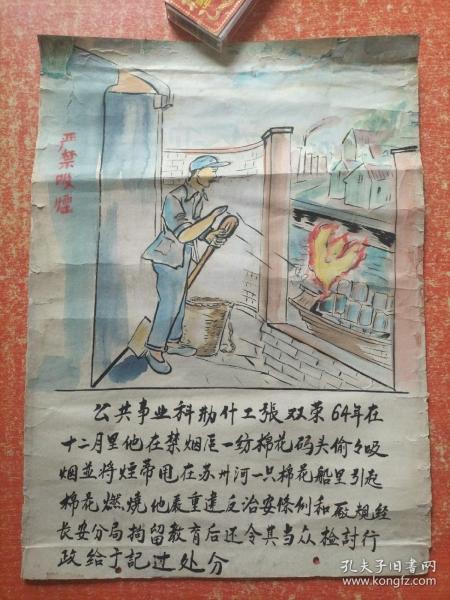 严禁吸煙
公共事业科勤什工張双荣64年在
十二月里他在禁烟区一纺棉花码头偷々吸
烟並将煙蒂甩在苏州河一只棉花船里引起
棉花燃燒他严重違反治安條例和厰規経
長安分局拘留教育后还令其当众檢討行
政给于記过处分
孔夫子旧书网